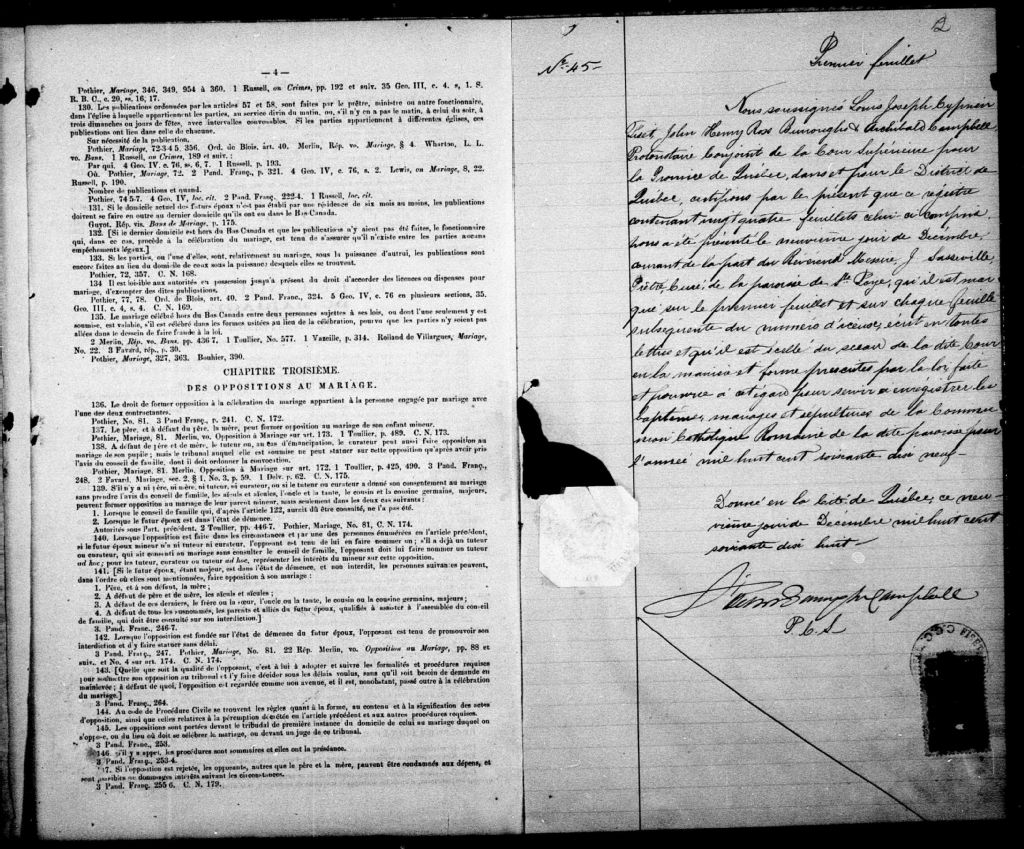 — 4 —
Pothier, Mariage, 346, 349, 954 à 360. 1 Russell, on Crimes, pp. 192 et suiv. 35 Geo. III, c. 4. s, 1. S.
R. B. C., c. 20, ss. 16, 17.
130. Les publications ordonnées par les articles 57 et 58, sont faites par le prêtre, ministre ou autre fonctionnaire,
dans l'église à laquelle appartiennent les parties, au service divin du matin, ou, s'il n'y en a pas le matin, à celui du soir, à
trois dimanches ou jours de fêtes, avec intervalles convenables. Si les parties appartiennent à différentes églises, ces
publications ont lieu dans celle de chacune.
Sur nécessité de la publication.
Pothier, Mariage, 72-3 4 5, 356. Ord. de Blois, art. 40. Merlin, Rép. vo. Mariage, § 4. Wharton, L. L.
vo. Bans. 1 Russell, on Crimes, 189 et suiv. :
Par qui. 4 Geo. IV, c. 76, ss. 6, 7. 1 Russell, p. 193.
Où. Pothier, Mariage, 72. 2 Pand. Franç., p. 321. 4 Geo. IV, c. 76, s. 2. Lewis, on Mariage, 8, 22.
Russell, p. 190.
Nombre de publications et quand.
Pothier, 74 5-7. 4 Geo. IV, loc. cit. 2 Pand. Franç. 222-4. 1 Russell, loc. cit.
131. Si le domicile actuel des futurs époux n'est pas établi par une résidence de six mois au moins, les publications
doivent se faire en outre au dernier domicile qu'ils ont eu dans le Bas Canada.
Guyot. Rép. vis. Bans de Mariage, p. 175.
132. [Si le dernier domicile est hors du Bas Canada et que les publications n'y aient pas été faites, le fonctionnaire
qui, dans ce cas, procède à la célébration du mariage, est tenu de s'assurer qu'il n'existe entre les parties aucuns
empêchements légaux.]
133. Si les parties, ou l'une d'elles, sont, relativement au mariage, sous la puissance d'autrui, les publications sont
encore faites au lieu du domicile de ceux sous la puissance desquels elles se trouvent.
Pothier, 72, 357. C. N. 168.
134 Il est loisible aux autorités en possession jusqu'à présent du droit d'accorder des licences ou dispenses pour
mariage, d'exempter des dites publications.
Pothier, 77, 78. Ord. de Blois, art. 40. 2 Pand. Franç., 324. 5 Geo. IV, c. 76 en plusieurs sections, 35.
Geo. III, c. 4, s. 4. C. N. 169.
135. Le mariage célébré hors du Bas Canada entre deux personnes sujettes à ses lois, ou dont l'une seulement y est
soumise, est valable, s'il est célébré dans les formes usitées au lieu de la célébration, pourvu que les parties n'y soient pas
allées dans le dessein de faire fraude à la loi.
2 Merlin, Rép. vo. Bans, pp. 436 7. 1 Toullier, No. 577. 1 Vazeille, p. 314. Rolland de Villargues, Mariage,
No. 22. 3 Favard, rép., p. 30.
Pothier, Mariage, 327, 363. Bouhier, 390.
CHAPITRE TROISIÈME.
DES OPPOSITIONS AU MARIAGE.
136. Le droit de former opposition à la célébration du mariage appartient à la personne engagée par mariage avec
l'une des deux contractantes.
Pothier, No. 81. 3 Pand Franç., p. 241. C. N. 172.
137. Le père, et à défaut du père, la mère, peut former opposition au mariage de son enfant mineur.
Pothier, Mariage, 81. Merlin, vo. Opposition à Mariage sur art. 173. 1 Toullier, p. 489. C. N. 173.
138. A défaut de père et de mère, le tuteur ou, au cas d'émancipation, le curateur peut aussi faire opposition au
mariage de son pupile ; mais le tribunal auquel elle est soumise ne peut statuer sur cette opposition qu'après avoir pris
l'avis du conseil de famille, dont il doit ordonner la convocation.
Pothier, Mariage, 81. Merlin, Opposition à Mariage sur art. 172. 1 Toullier, p. 425, 490. 3 Pand. Franç.,
248. 2 Favard, Mariage, sec. 2, § 1, No. 3, p. 59. 1 Delv. p. 62. C. N. 175.
139. S'il n'y a ni père, ni mère, ni tuteur, ni curateur, ou si le tuteur ou curateur a donné son consentement au mariage
sans prendre l'avis du conseil de famille, les aïeuls et aïeules, l'oncle et la tante, le cousin et la cousine germains, majeurs,
peuvent former opposition au mariage de leur parent mineur, mais seulement dans les deux cas suivants :
1. Lorsque le conseil de famille, qui, d'après l'article 122, aurait dû être consulté, ne l'a pas été.
2. Lorsque le futur époux est dans l'état de démence.
Autorités sous l'art. précédent. 2 Toullier, pp. 446-7. Pothier, Mariage, No. 81, C. N. 174.
140. Lorsque l'opposition est faite dans les circonstances et par une des personnes énumérées en l'article précédent,
si le futur époux mineur n'a ni tuteur ni curateur, l'opposant est tenu de lui en faire nommer un ; s'il a déjà un tuteur
ou curateur, qui ait consenti au mariage sans consulter le conseil de famille, l'opposant doit lui faire nommer un tuteur
ad hoc ; pour les tuteur, curateur ou tuteur ad hoc, représenter les intérêts du mineur sur cette opposition.
141. [Si le futur époux, étant majeur, est dans l'état de démence, et non interdit, les personnes suivantes peuvent,
dans l'ordre où elles sont mentionnées, faire opposition à son mariage :
1. Père, et à son défaut, la mère ;
2. A défaut de père et de mère, les aïeuls et aïeules ;
3. A défaut de ces derniers, le frère ou la sœur, l'oncle ou la tante, le cousin ou la cousine germains, majeurs ;
4. A défaut de tous les susnommés, les parents et alliés du futur époux, qualifiés à assister à l'assemblée du conseil
de famille, qui doit être consulté sur son interdiction.]
3 Pand. Franç., 246-7.
142. Lorsque l'opposition est fondée sur l'état de démence du futur époux, l'opposant est tenu de promouvoir son
interdiction et d'y faire statuer sans délai.
3 Pand. Franç., 247. Pothier, Mariage, No. 81. 22 Rép. Merlin, vo. Opposition au Mariage, pp. 88 et
suiv. et No. 4 sur art. 174. C. N. 174.
143. [Quelle que soit la qualité de l'opposant, c'est à lui à adopter et suivre les formalités et procédures requises
pour soumettre son opposition au tribunal et l'y faire décider sous les délais voulus, sans qu'il soit besoin de demande en
mainlevée ; à défaut de quoi, l'opposition est regardée comme non avenue, et il est, nonobstant, passé outre à la célébration
du mariage.]
3 Pand. Franç., 264.
144. Au code de Procédure Civile se trouvent les règles quant à la forme, au contenu et à la signification des actes
d'opposition, ainsi que celles relatives à la péremption décrétée en l'article précédent et aux autres procédures requises.
145. Les oppositions sont portées devant le tribunal de première instance du domicile de celui au mariage duquel on
s'oppose, ou du lieu où doit se célébrer le mariage, ou devant un juge de ce tribunal.
3 Pand. Franç., 253.
146. S'il y a appel, les procédures sont sommaires et elles ont la préséance.
3 Pand. Franç., 253-4.
147. Si l'opposition est rejetée, les opposants, autres que le père et la mère, peuvent être condamnés aux dépens, et
sont passibles de dommages intérêts suivant les circonstances.
3 Pand. Franç. 255 6. C. N. 179.
No. 45
2
Premier feuillet
Nous soussignés Louis Joseph Cyprien
Fiset, John Henry Rose Burroughs & Archibald Campbell,
Protonotaire Conjoint de la Cour Supérieure pour
la Province de Québec, dans et pour le District de
Québec, certifions par le présent que ce régistre
contenant vingt quatre feuillets celui ci compris
nous a été présenté le neuvième jour de Décembre
courant de la part du Révérend Messire J. Sasseville,
Prêtre Curé de la paroisse de Ste. Foye, qu'il est mar
qué sur le premier feuillet et sur chaque feuille
subséquente du numéro d'icceux, écrit en toutes
lettres et qu'il est scellé du sceau de la dite Cour
en la manière et forme prescrites par la loi, faite
et pourvue à cet égard pour servir à enrégistrer les
baptêmes, mariages et sépultures de la Commu
nion Catholique Romaine de la dite paroisse pour
l'année mil huit cent soixante dix neuf-
Donné en la Cité de Québec, ce neu-
vième jour de Décembre mil huit cent
soixante dix huit-
Fiset Burroughs Campbell
P. C. S